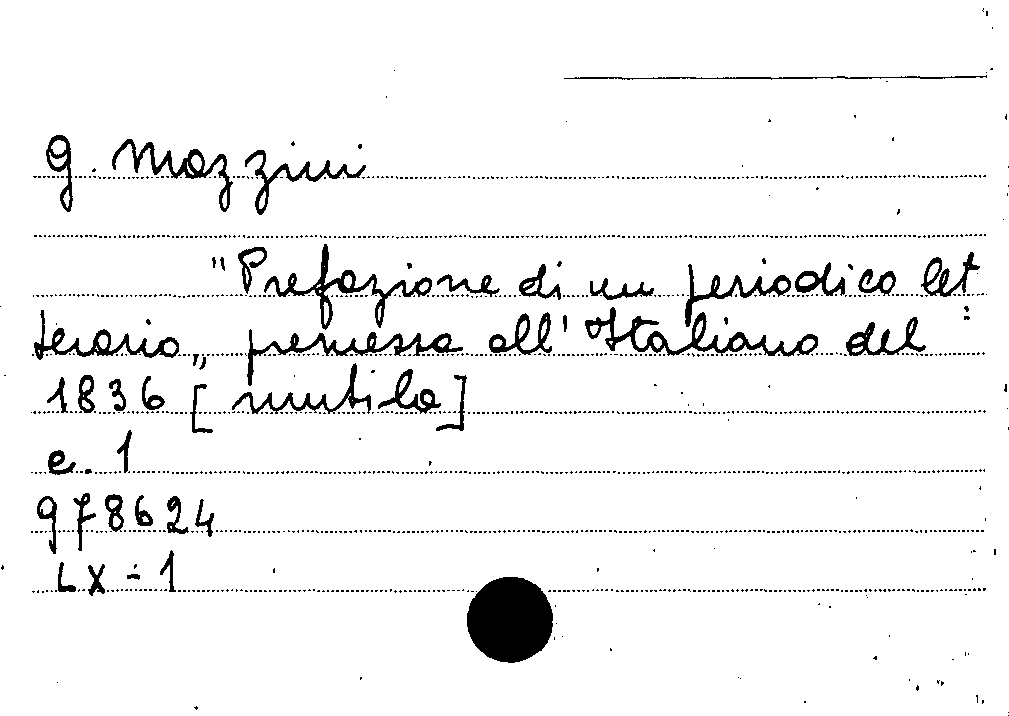 G. Mazzini
"Prefazione di un periodico let
terario„ premessa all'Italiano del
1836 [mutila]
c. 1
978624
LX-1